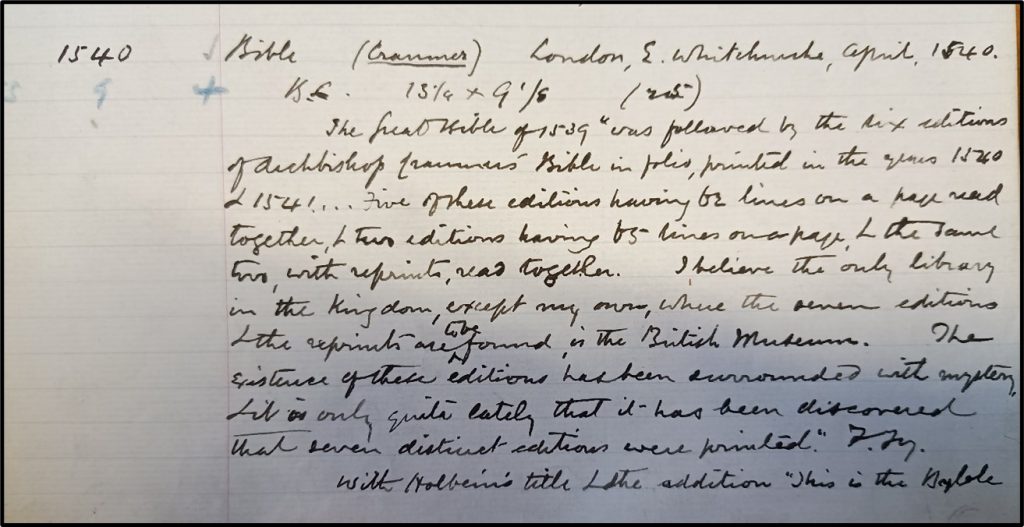 1540 Bible (Cranmer) London, E. Whitchurche, April, 1540.
9 + B.L. 13 1/4 x 9 1/8 (25)
The Great Bible of 1539 "was followed by the six editions
of Archbishop Cranmer's Bible in folio, printed in the years 1540
& 1541... Five of these editions having 62 lines on a page read
together, & two editions having 65 lines on a page, & the same
two, with reprints, read together. I believe the only library
in the Kingdom, except my own, where the seven editions
& the reprints are to be found, is the British Museum. The
existence of these editions has been surrounded with mystery,
& it is only quite lately that it has been discovered
that seven distinct editions were printed." F. Fry.
With Holbein's title & the addition "This is the Byble